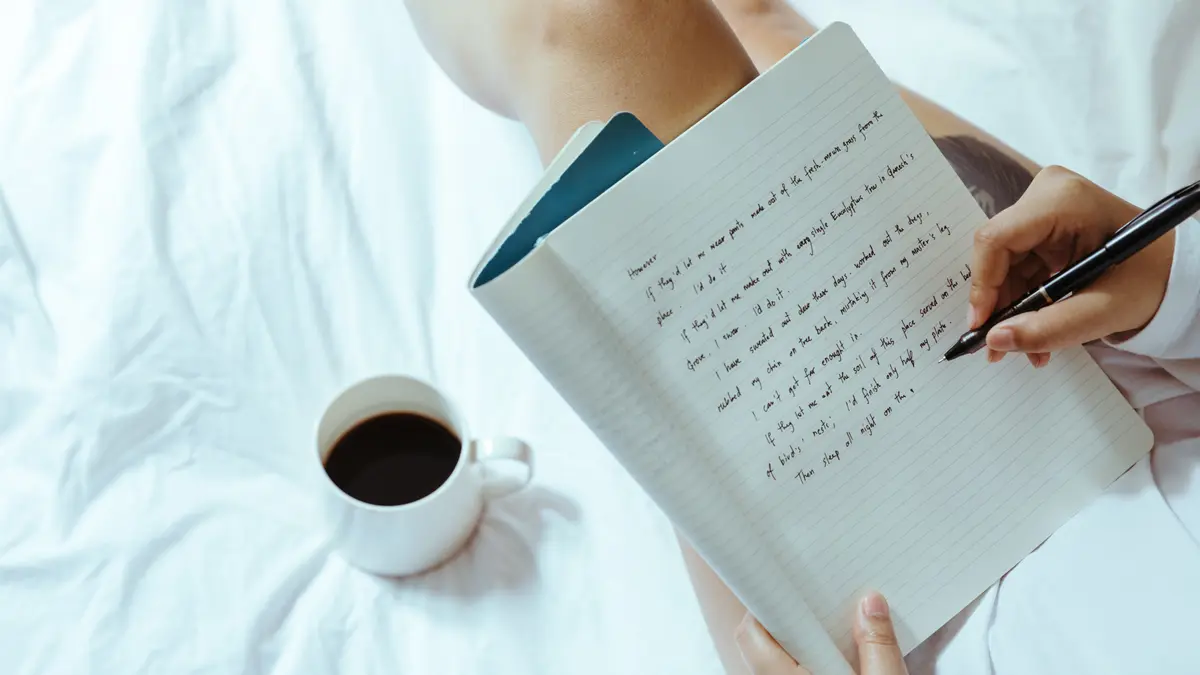 However
If they'd let me wear pants made out of the fresh-morning grass from the
place. I'd do it
If they'd let me make out with every single Eucalyptus tree in Queech's
Grove, I swear. I'd do it.
I have sweated out dear them days. worked out the dregs,
rubbed my chin on tree bark, mistaking it from my master's leg
I can't get far enough in.
If they let me eat the soil of this place served on the bed
of birds' nests; I'd finish only half my plate.
Then sleep all night on the